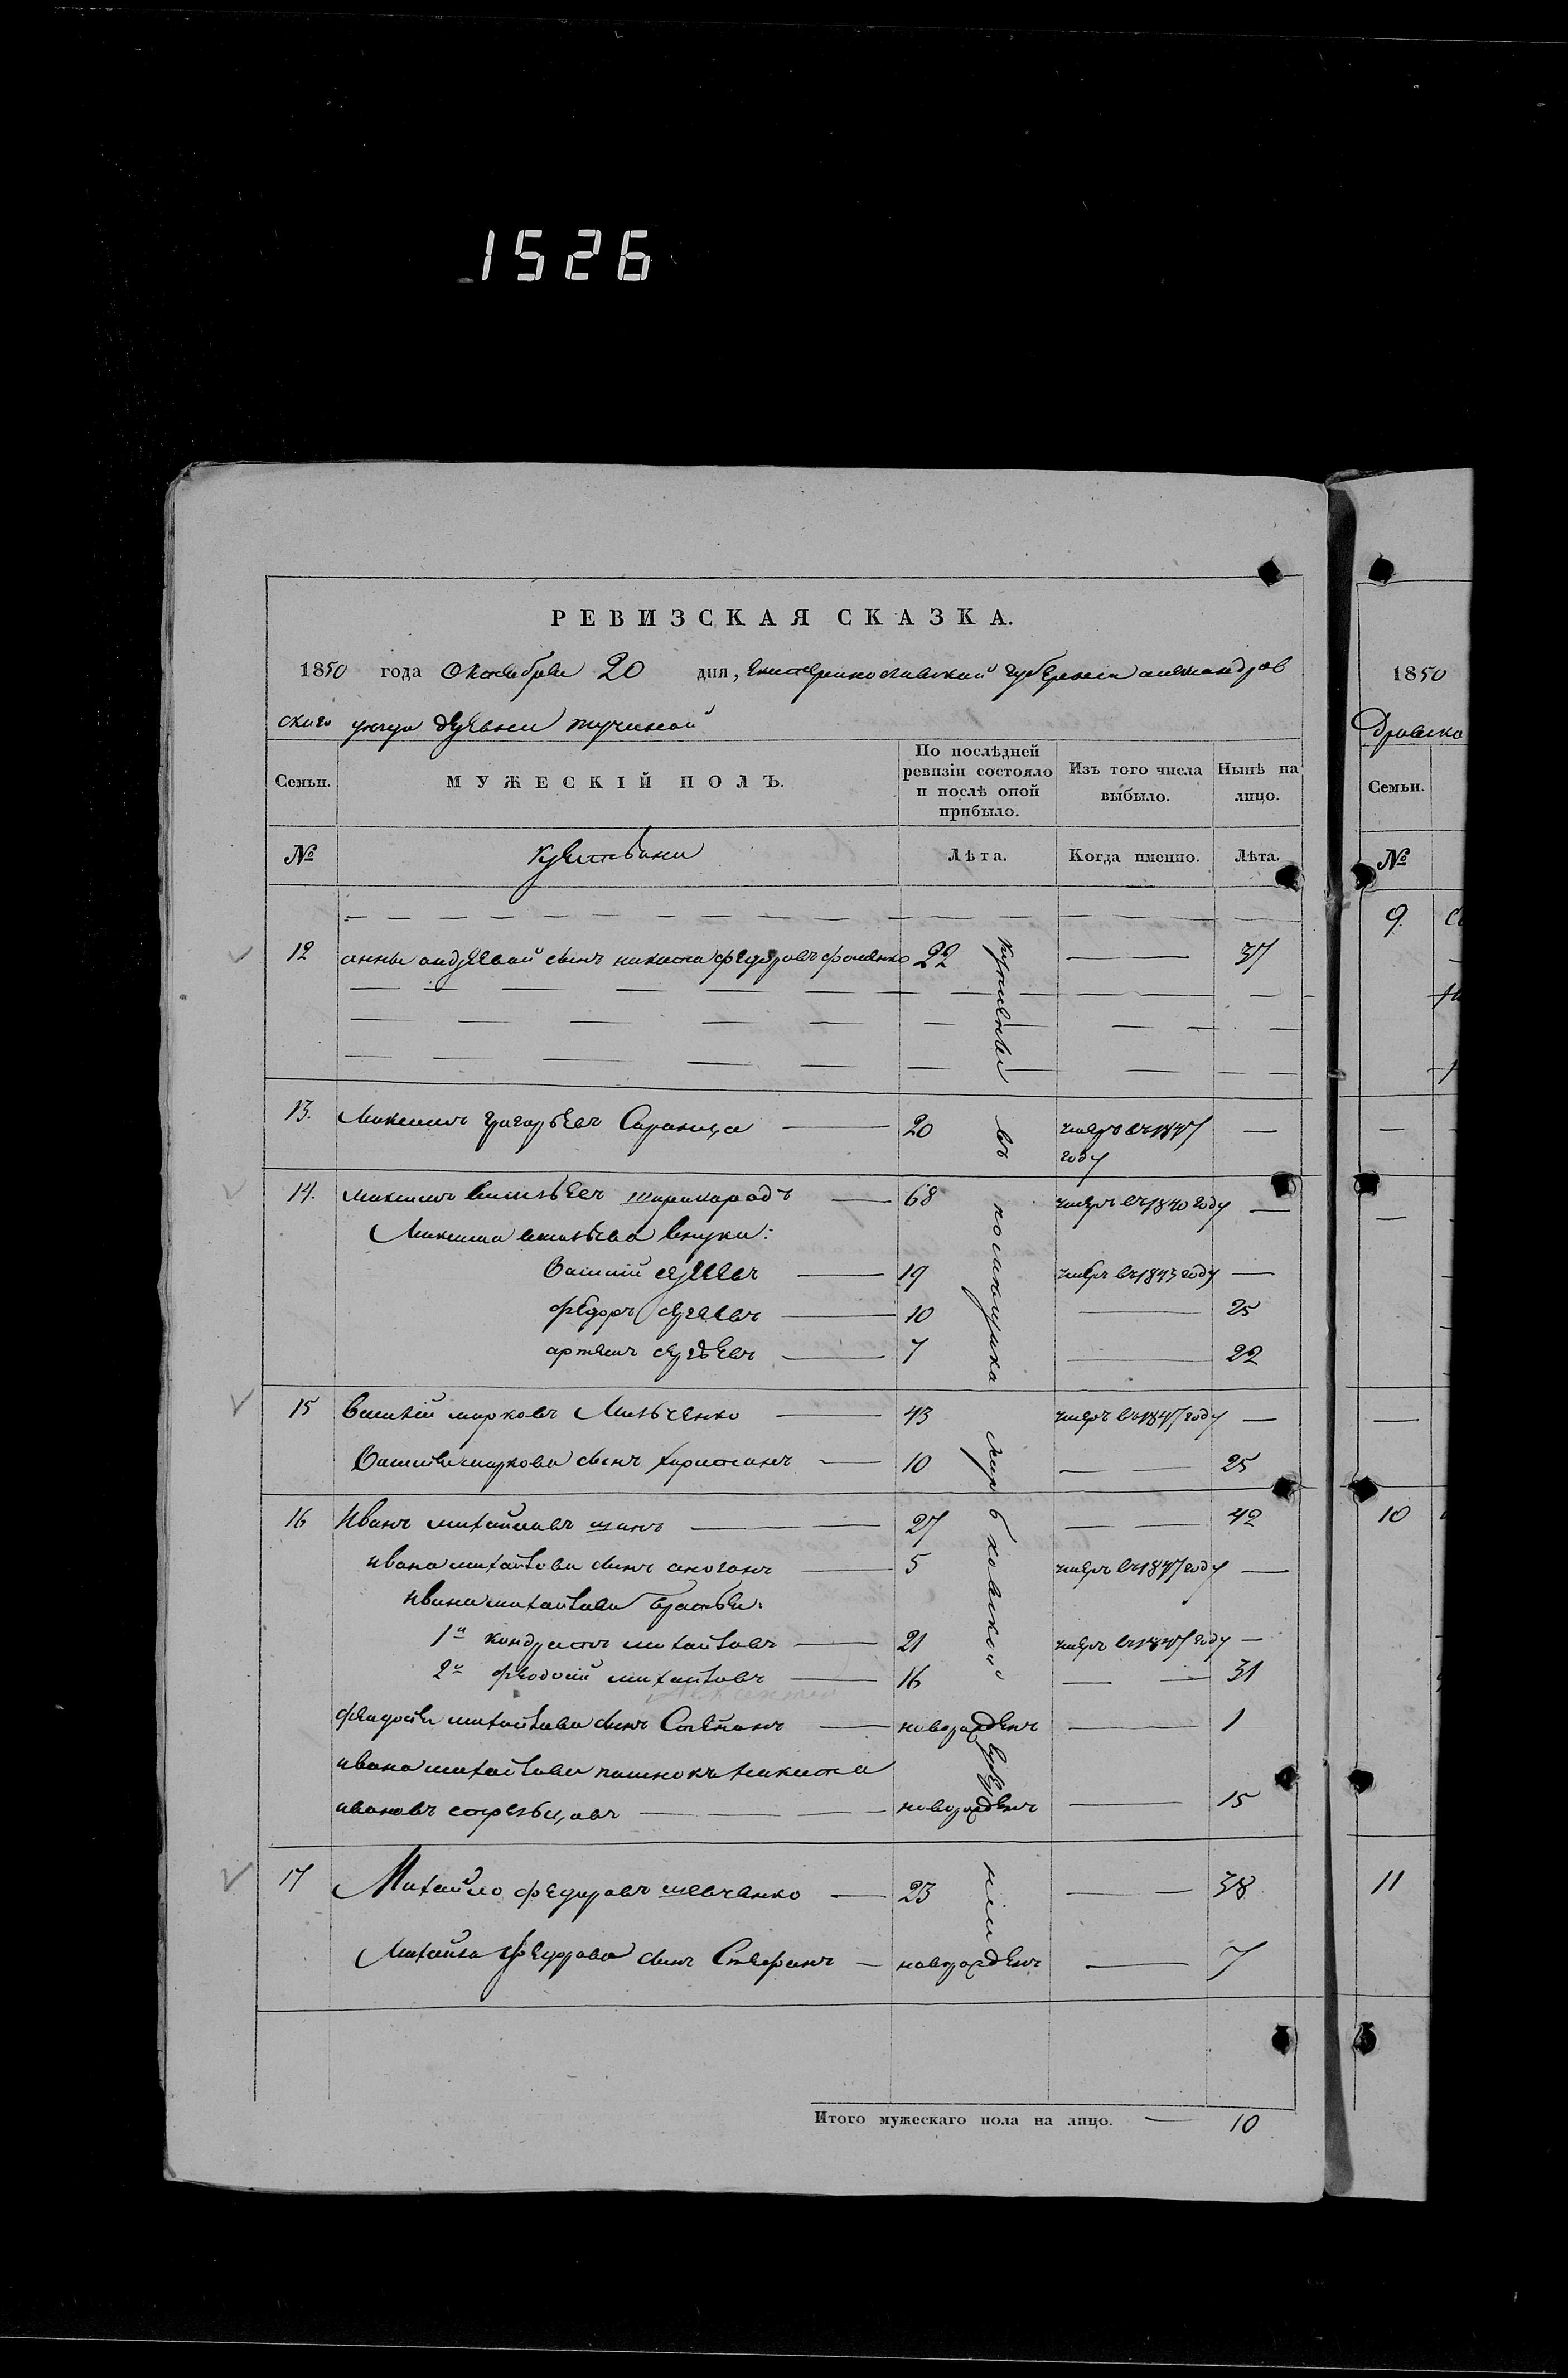 1526
РЕВИЗСКАЯ СКАЗКА.
1850 года Октября 20 дня, Екатеринославской губернии александров
скаго уезда деревни
Семьи. МУЖЕСКІЙ ПОЛЪ. По послѣдней ревизіи состояло и послѣ оной прибыло. Изъ того числа выбыло. Нынѣ на лицо.
№ крестьяни Лѣта. Когда именно. Лѣта.
12 анны андреевой сынъ никита федоровъ фоменко 22 — 37
13. Максимъ григорьевъ Сараница — 20 умеръ въ 1847 году —
14. максимъ васильевъ — 68 умеръ въ 1840 году —
Максима васильева внуки:
Василій сергеевъ — 19 умеръ въ 1843 году —
федоръ сергеевъ — 10 — 25
артемъ сергѣевъ — 7 — 22
15 василій марковъ Мильченко — 43 умеръ въ 1847 году —
Василія маркова сынъ — 10 — 25
16 Иванъ михайловъ — 27 — 42
ивана михайлова сынъ — 5 умеръ въ 1847 году —
ивана михайлова братья:
1й кондратъ михайловъ — 21 умеръ въ 1847 году —
2й феодосій михайловъ — 16 — 31
михайлова сынъ Степанъ — новорожденъ — 1
ивана михайлова никита
ивановъ стрельцовъ — новорожденъ — 15
17 Михайло федоровъ шевченко — 23 — 38
Михайла федорова сынъ Стефанъ — новорожденъ — 7
купленны въ помещика
Итого мужескаго пола на лицо. — 10
1850
Семьи.
№
9.
10
11